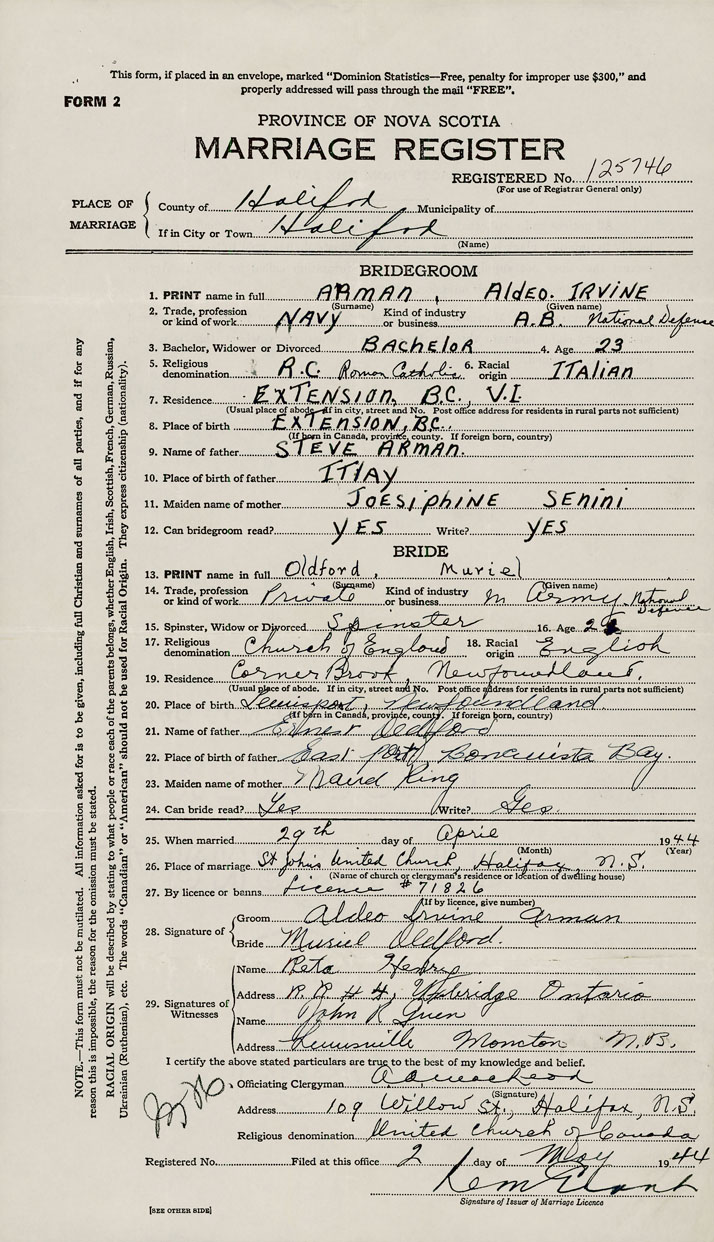 This form, if placed in an envelope, marked "Dominion Statistics—Free, penalty for improper use $300," and
properly addressed will pass through the mail "FREE".
FORM 2
PROVINCE OF NOVA SCOTIA
MARRIAGE REGISTER
REGISTERED No. 125746
(For use of Registrar General only)
PLACE OF MARRIAGE
County of Halifax Municipality of
If in City or Town Halifax
(Name)
BRIDEGROOM
1. PRINT name in full ARMAN , Aldeo. IRVINE
(Surname) (Given name)
2. Trade, profession or kind of work NAVY Kind of industry or business A.B. National Defense
3. Bachelor, Widower or Divorced BACHELOR 4. Age 23
5. Religious denomination R.C. Roman Catholic 6. Racial origin ITALIAN
7. Residence EXTENSION, B.C., V.I.
(Usual place of abode. If in city, street and No. Post office address for residents in rural parts not sufficient)
8. Place of birth EXTENSION, BC.
(If born in Canada, province, county. If foreign born, country)
9. Name of father STEVE ARMAN.
10. Place of birth of father ITlAY
11. Maiden name of mother JOESiPHINE SENINI
12. Can bridegroom read? YES Write? YES
BRIDE
13. PRINT name in full Oldford, Muriel
(Surname) (Given name)
14. Trade, profession or kind of work Private Kind of industry or business in Army National Defense
15. Spinster, Widow or Divorced Spinster 16. Age
17. Religious denomination Church of England 18. Racial origin English
19. Residence Corner Brook, Newfoundland.
(Usual place of abode. If in city, street and No. Post office address for residents in rural parts not sufficient)
20. Place of birth Lewisport, Newfoundland.
(If born in Canada, province, county. If foreign born, country)
21. Name of father Ernest Oldford
22. Place of birth of father East Port Bonavista Bay.
23. Maiden name of mother Maud King
24. Can bride read? Yes Write? Yes.
25. When married 29th day of April 1944
(Month) (Year)
26. Place of marriage St John's United Church, Halifax, N.S.
(Name of church or clergyman's residence or location of dwelling house)
27. By licence or banns Licence #71826
(If by licence, give number)
28. Signature of
Groom Aldeo Irvine Arman
Bride Muriel Oldford.
29. Signatures of Witnesses
Name Reta Henry
Address R.R. #4, Uxbridge Ontario
Name John R
Address Lewisville Moncton N.B.
I certify the above stated particulars are true to the best of my knowledge and belief.
Officiating Clergyman
(Signature)
Address 109 Willow St., Halifax, N.S.
Religious denomination United Church of Canada
Registered No. Filed at this office 2 day of May 1944
Signature of Issuer of Marriage Licence
[SEE OTHER SIDE]
NOTE.—This form must not be mutilated. All information asked for is to be given, including full Christian and surnames of all parties, and if for any
reason this is impossible, the reason for the omission must be stated.
RACIAL ORIGIN will be described by stating to what people or race each of the parents belongs, whether English, Irish, Scottish, French, German, Russian,
Ukrainian (Ruthenian), etc. The words "Canadian" or "American" should not be used for Racial Origin. They express citizenship (nationality).